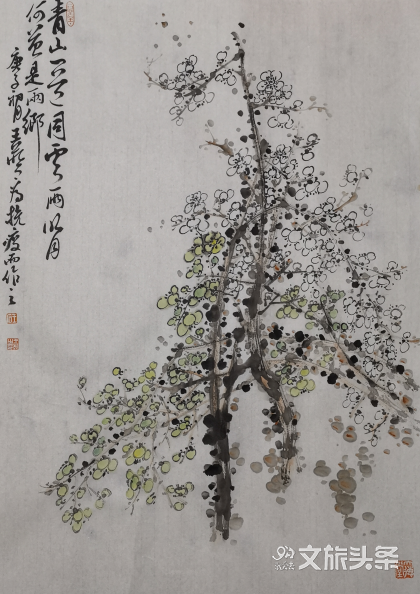 青山一道同云雨明月
何曾是兩鄉
庚子 为抗疫而作之
文旅头条